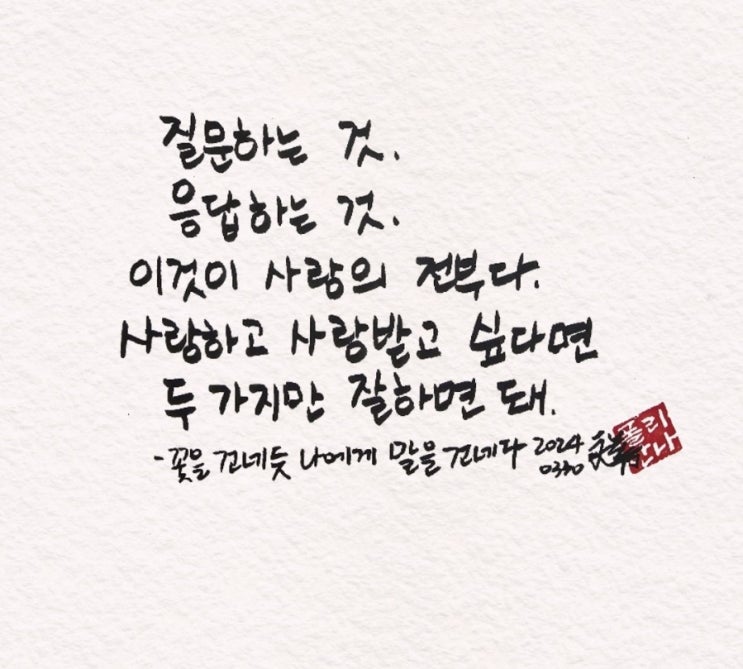 질문하는 것.
응답하는 것.
이것이 사랑의 전부다.
사랑하고 사랑받고 싶다면
두 가지만 잘하면 돼.
-꽃을 건네듯 나에게 말을 건네다 2024
0330
폴리
안나